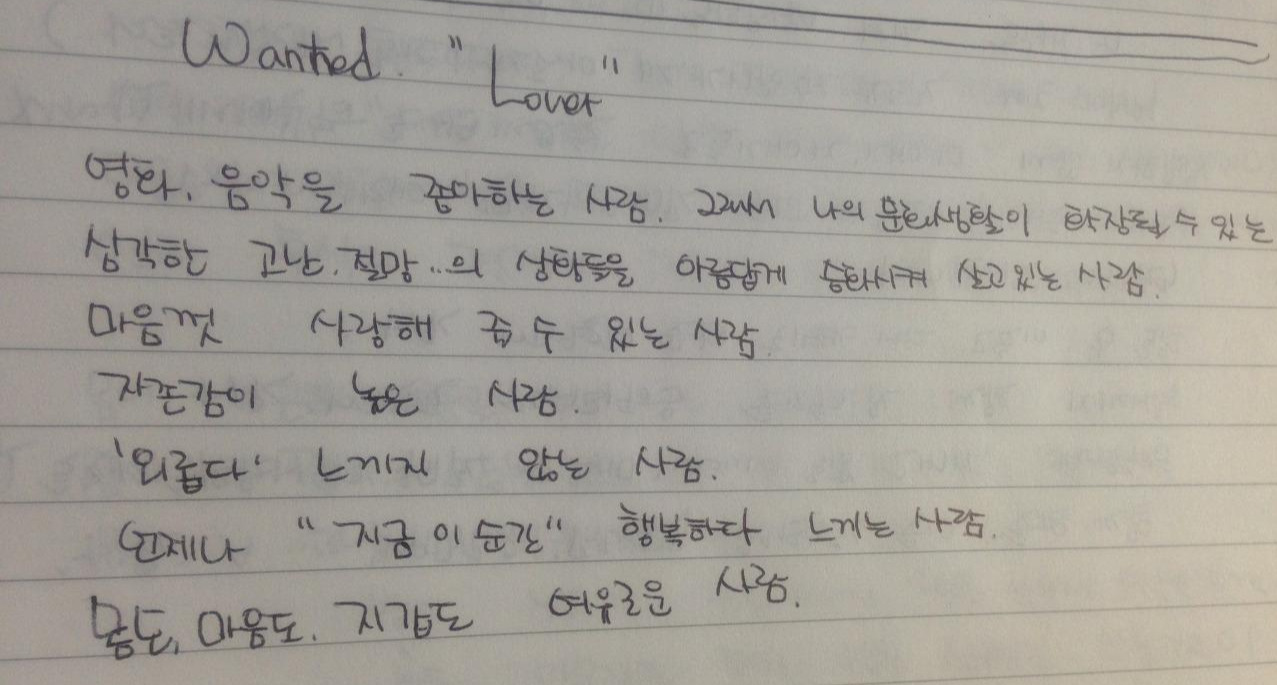 Wanted. "Lover"
영화, 음악을 좋아하는 사람. 그래서 나의 문화생활이 확장될 수 있는
심각한 고난, 절망..의 상황들을 아름답게 승화시켜 살고있는 사람.
마음껏 사랑해 줄 수 있는 사람.
자존감이 높은 사람.
'외롭다' 느끼지 않는 사람.
언제나 "지금 이 순간" 행복하다 느끼는 사람.
몸도, 마음도. 지갑도 여유로운 사람.